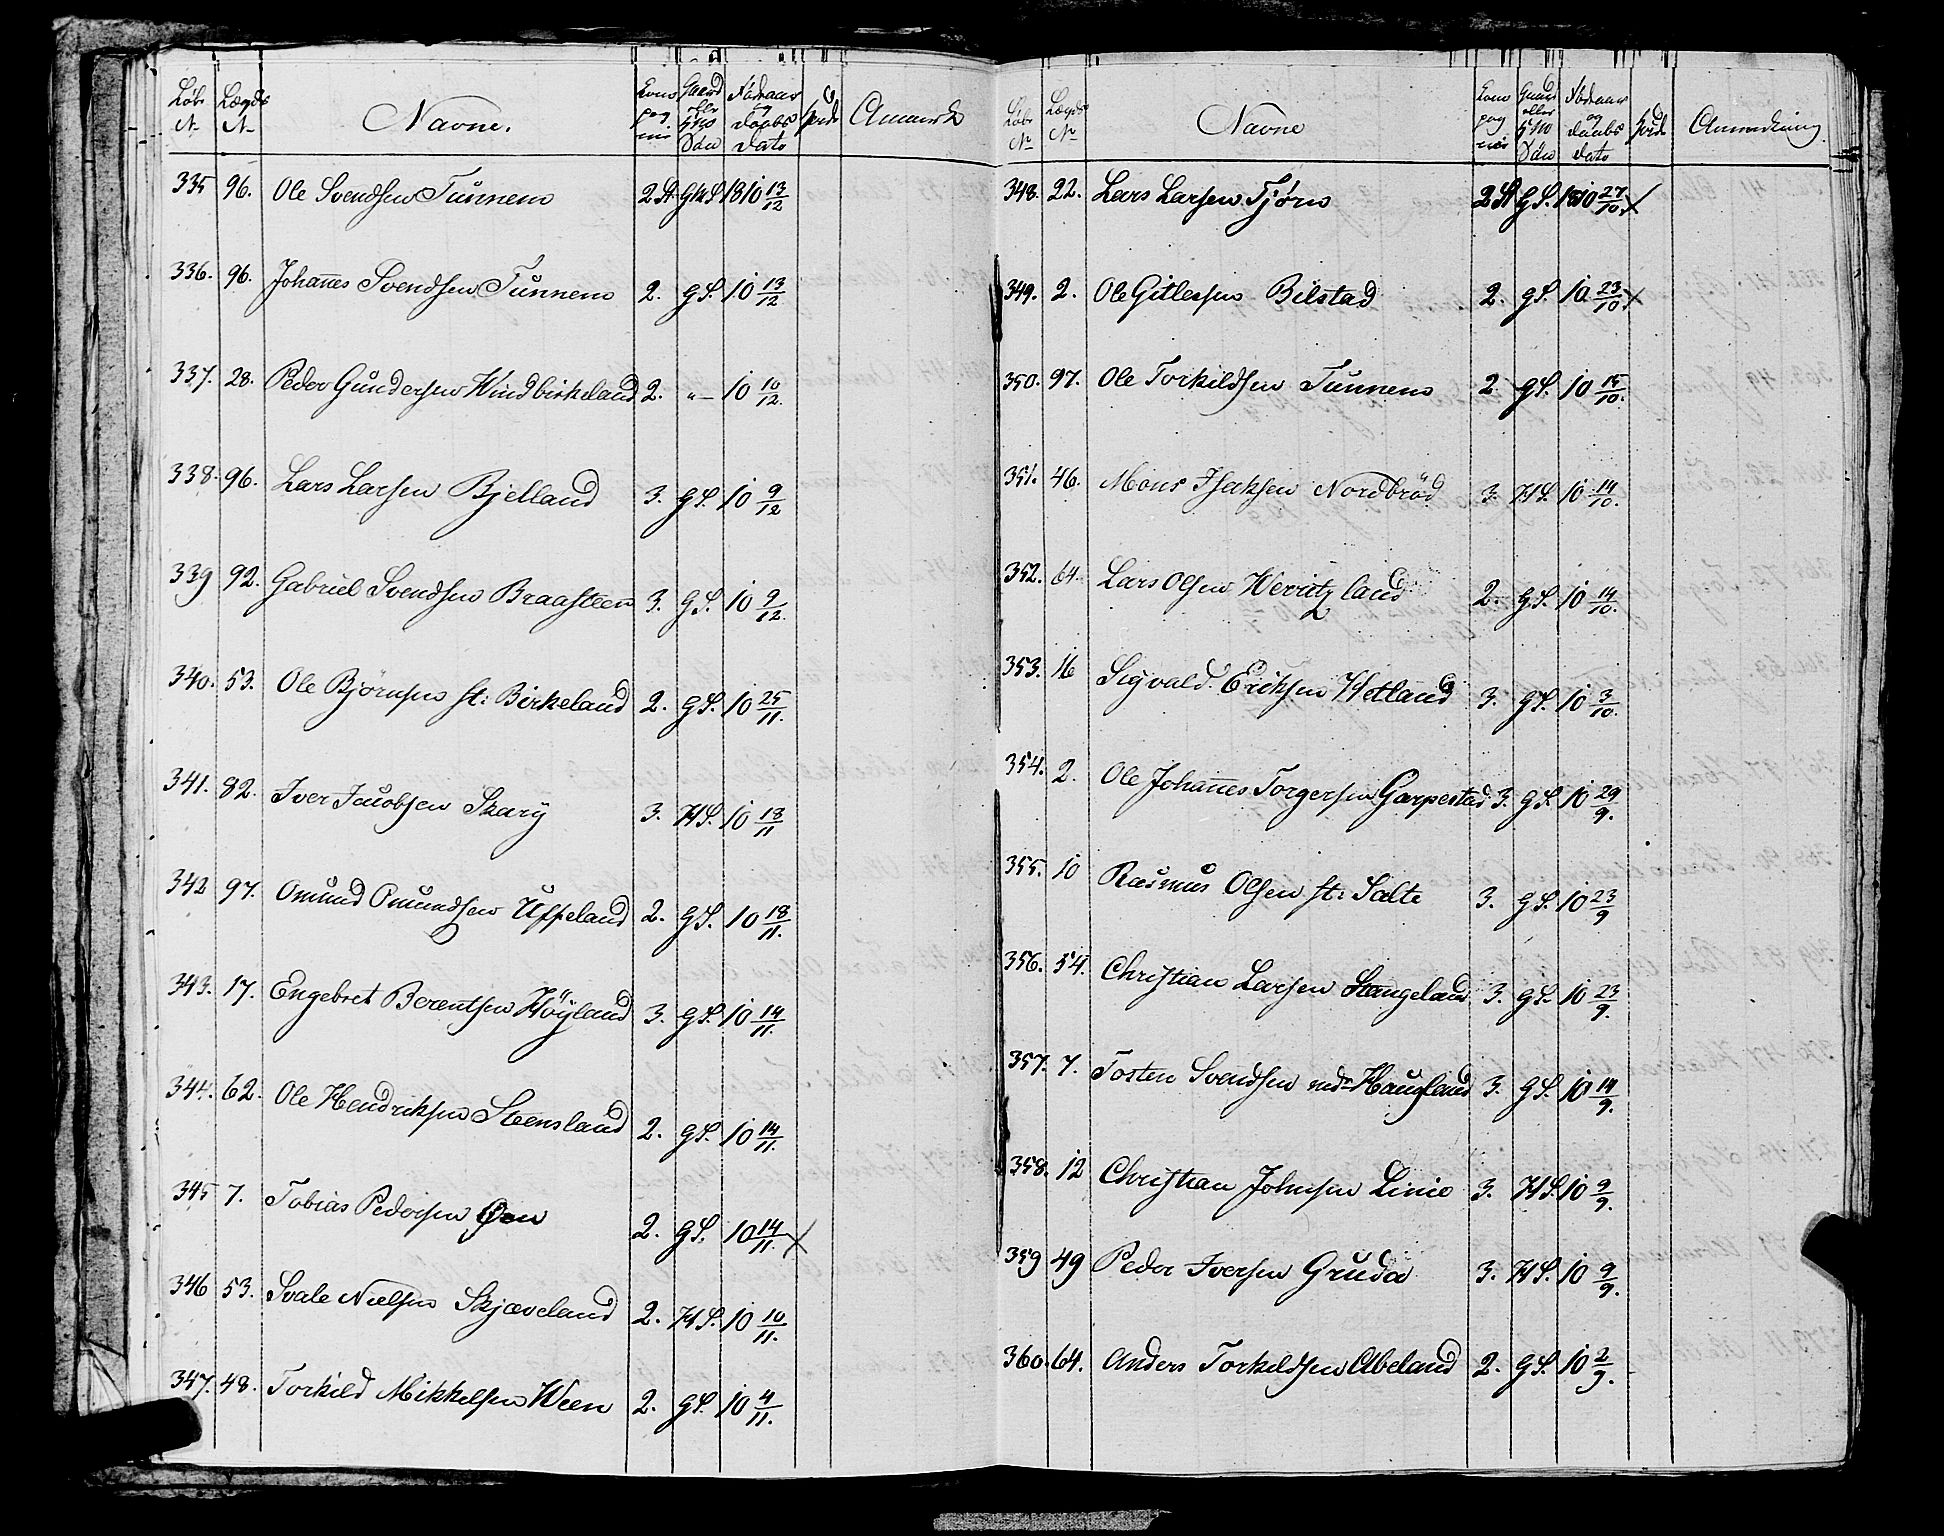 Løb N Lægds N Navne. Kom pag nie Gaard eller HM Søn Fødeaar og Daabs Dato Høide Anmærk
335 96. Ole Svendsen Tunnem 2 St GM S 1810 13/12
336. 96. Johannes Svendsen Tunnem 2. G S. 10 13/12
337. 28. Peder Gundersen Windbirkeland 2. "— 10 10/12.
338. 96. Lars Larsen Bjelland 3. G S. 10 9/12
339 92. Gabriel Svendsen Braasteen 3. G S. 10 9/12.
340. 53. Ole Bjørnsen st: Birkeland 2. G S. 10 25/11.
341. 82. Iver Jacobsen Skary 3. H S. 10 18/11
342 97. Omund Omundsen Uppeland 2. G S. 10 18/11.
343. 17. Engebret Berentsen Höyland 3. G S. 10 14/11.
344. 62. Ole Hendriksen Steensland 2. G S. 10 14/11.
345 7. Tobias Pedersen Øen 2. G S. 10 14/11. X
346 53. Svale Nielsen Skjæveland 2. H S. 10 10/11.
347. 48. Torkild Mikkelsen Ween 2. G S. 10 4/11.
Løb N Lægds N Navne Kom pag nie Gaard eller HM Søn Fødeaar og Daabs Dato Høide Anmerkning
348. 22. Lars Larsen Tjørn 2 St G S. 1810 27/10. X
349. 2. Ole Gitlessen Bilstad 2. G S. 10 23/10. X
350. 97. Ole Torkildsen Tunnem 2. G S. 10 15/10.
351. 46. Mons Isaksen Nordbrød 3. H S. 10 14/10.
352. 64. Lars Olsen land 2. G S. 10 14/10.
353. 16 Sigvald Eriksen Hetland 3. G S. 10 3/10.
354. 2. Ole Johannes Torgersen Garpestad 3. G S. 10 29/9.
355. 10 Rasmus Olsen st: Salte 3. G S. 10 23/9
356. 54. Christian Larsen Stangeland 3. G S. 10 23/9.
357. 7. Tosten Svendsen nedr Haugland 3. G S. 10 14/9.
358. 12 Christian Johnsen Linie 3. H S. 10 9/9.
359 49 Peder Iversen Gruda 3. H S. 10 9/9.
360. 64. Anders Torkeldsen Abeland 2. G S. 10 2/9.